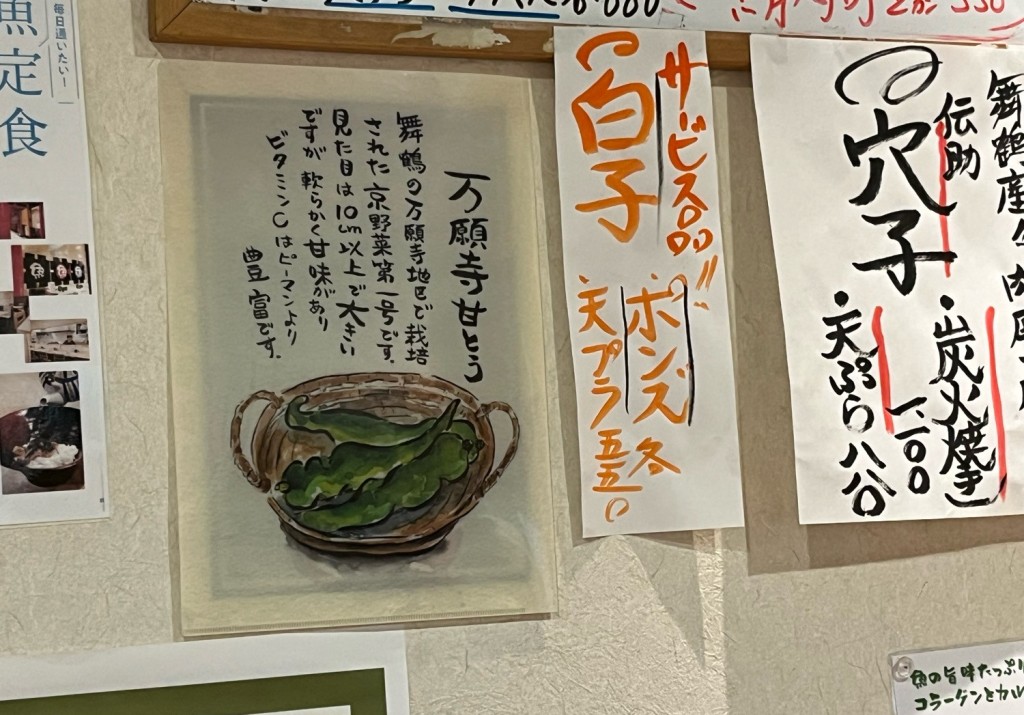 毎日通いたい！
魚定食
万願寺甘とう
舞鶴の万願寺地区で栽培
された京野菜第一号です。
見た目は10cm以上で大きい
ですが軟らかく甘味があり
ビタミンCはピーマンより
豊富です。
サービス品!!
白子
ポンズ
天プラ
各
五五〇
舞鶴産
伝助
穴子
・炭火焼き
一、一〇〇
・天ぷら 八八〇
魚の旨味たっぷり
コラーゲンとカル